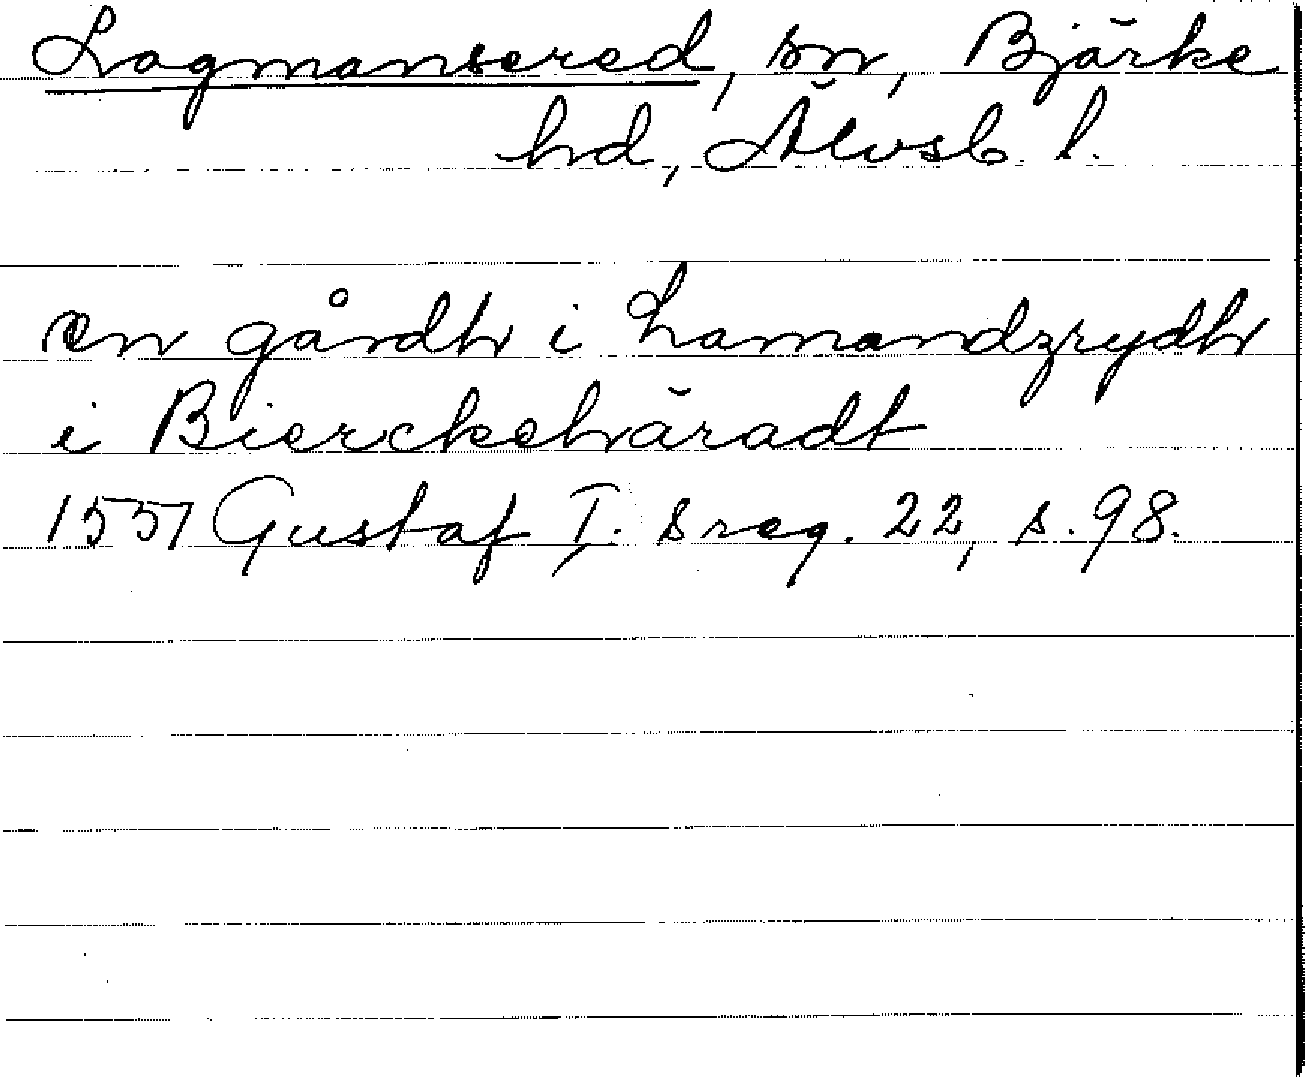 Lagmansered, sn, Bjärke
hd, Älvsb. l.
en gårdh i Lamandzrydh
i Bierckehäradt
1551 Gustaf I. s reg. 22, s. 98.